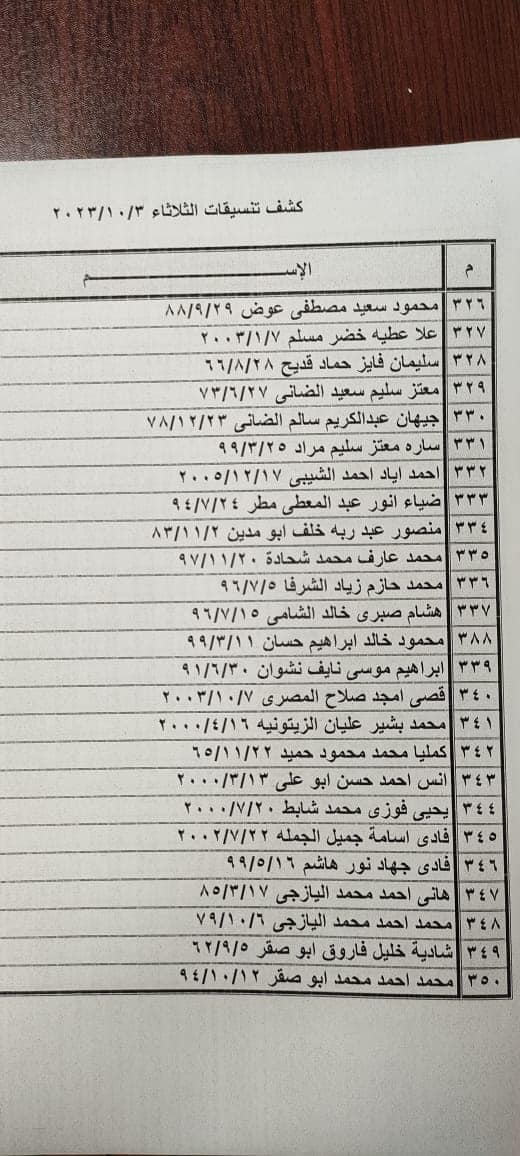 كشف تنسيقات الثلاثاء ٢٠٢٣/١٠/٣
م الإســـــــم
٣٢٦ محمود سعيد مصطفى عوض ٨٨/٩/٢٩
٣٢٧ علا عطيه خضر مسلم ٢٠٠٣/١/٧
٣٢٨ سليمان فايز حماد قديح ٦٦/٨/٢٨
٣٢٩ معتز سليم سعيد الضانى ٧٣/٦/٢٧
٣٣٠ جيهان عبدالكريم سالم الضانى ٧٨/١٢/٢٣
٣٣١ ساره معتز سليم مراد ٩٩/٣/٢٥
٣٣٢ احمد اياد احمد الشيبى ٢٠٠٥/١٢/١٧
٣٣٣ ضياء انور عبد المعطى مطر ٩٤/٧/٢٤
٣٣٤ منصور عبد ربه خلف ابو مدين ٨٣/١١/٢
٣٣٥ محمد عارف محمد شحادة ٩٧/١١/٢٠
٣٣٦ محمد حازم زياد الشرفا ٩٦/٧/٥
٣٣٧ هشام صبرى خالد الشامى ٩٦/٧/١٥
٣٨٨ محمود خالد ابراهيم حسان ٩٩/٣/١١
٣٣٩ ابراهيم موسى نايف نشوان ٩١/٦/٣٠
٣٤٠ قصى امجد صلاح المصرى ٢٠٠٣/١٠/٧
٣٤١ محمد بشير عليان الزيتونيه ٢٠٠٠/٤/١٦
٣٤٢ كمليا محمد محمود حميد ٦٥/١١/٢٢
٣٤٣ انس احمد حسن ابو على ٢٠٠٠/٣/١٣
٣٤٤ يحيى فوزى محمد شابط ٢٠٠٠/٧/٢٠
٣٤٥ فادى اسامة جميل الجمله ٢٠٠٢/٧/٢٢
٣٤٦ فادى جهاد نور هاشم ٩٩/٥/١٦
٣٤٧ هانى احمد محمد اليازجى ٨٥/٣/١٧
٣٤٨ محمد احمد محمد اليازجى ٧٩/١٠/٦
٣٤٩ شادية خليل فاروق ابو صقر ٦٢/٩/٥
٣٥٠ محمد احمد محمد ابو صقر ٩٤/١٠/١٢